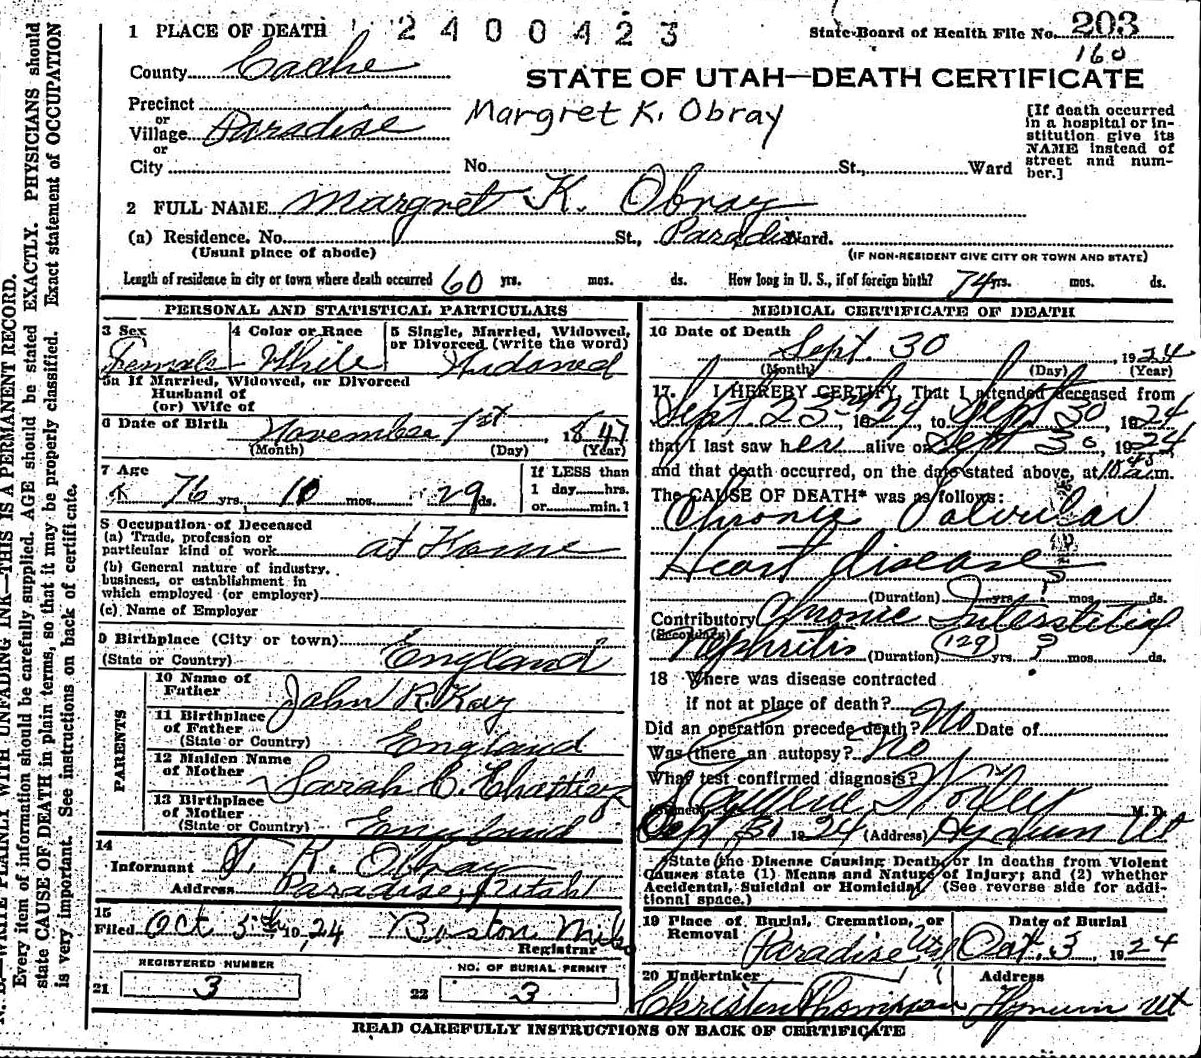 1 PLACE OF DEATH 2400423 State Board of Health File No. 203
160
County Cache
STATE OF UTAH—DEATH CERTIFICATE
Precinct
or
Village Paradise
or
City
Margret K. Obray
No. St., Ward
[If death occurred
in a hospital or in-
stitution give its
NAME instead of
street and num-
ber.]
2 FULL NAME Margret K. Obray
(a) Residence. No. St., Paradise Ward.
(Usual place of abode) (IF NON-RESIDENT GIVE CITY OR TOWN AND STATE)
Length of residence in city or town where death occurred 60 yrs. mos. ds. How long in U. S., if of foreign birth? 74 yrs. mos. ds.
PERSONAL AND STATISTICAL PARTICULARS
3 Sex 4 Color or Race 5 Single, Married, Widowed,
or Divorced (write the word)
Female White Widowed
5a If Married, Widowed, or Divorced
Husband of
(or) Wife of
6 Date of Birth November 1st, 1847
(Month) (Day) (Year)
7 Age If LESS than
76 yrs. 10 mos. 29 ds. 1 day hrs.
or min.?
8 Occupation of Deceased
(a) Trade, profession or
particular kind of work at Home
(b) General nature of industry,
business, or establishment in
which employed (or employer)
(c) Name of Employer
9 Birthplace (City or town)
(State or Country) England
PARENTS
10 Name of
Father John R. Kay
11 Birthplace
of Father
(State or Country) England
12 Maiden Name
of Mother Sarah C.
13 Birthplace
of Mother
(State or Country) England
14
Informant T. R. Obray
Address Paradise, Utah
15
Filed Oct 5th, 1924 Boston
Registrar
REGISTERED NUMBER NO. OF BURIAL PERMIT
21 3 22 3
MEDICAL CERTIFICATE OF DEATH
16 Date of Death Sept. 30, 1924
(Month) (Day) (Year)
17. I HEREBY CERTIFY, That I attended deceased from
Sept. 23, 1924, to Sept 30, 1924
that I last saw her alive on Sept 30, 1924
and that death occurred, on the date stated above, at m.
The CAUSE OF DEATH* was as follows:
Chronic Valvular
Heart disease
(Duration) yrs. ? mos. ds.
Contributory Chronic Interstitial
(Secondary) Nephritis (Duration) (129) yrs. ? mos. ds.
18 Where was disease contracted
if not at place of death?
Did an operation precede death? No Date of
Was there an autopsy? No
What test confirmed diagnosis?
(Signed) M. D.
Sept 30 1924 (Address) Hyrum Ut
*State the Disease Causing Death, or in deaths from Violent
Causes state (1) Means and Nature of Injury; and (2) whether
Accidental, Suicidal or Homicidal. (See reverse side for addi-
tional space.)
19 Place of Burial, Cremation, or Date of Burial
Removal
Paradise Utah Oct. 3, 1924
20 Undertaker Address
Christen Hyrum Ut
READ CAREFULLY INSTRUCTIONS ON BACK OF CERTIFICATE
N. B.—WRITE PLAINLY WITH UNFADING INK—THIS IS A PERMANENT RECORD.
Every item of information should be carefully supplied. AGE should be stated EXACTLY. PHYSICIANS should
state CAUSE OF DEATH in plain terms, so that it may be properly classified. Exact statement of OCCUPATION
is very important. See instructions on back of certificate.